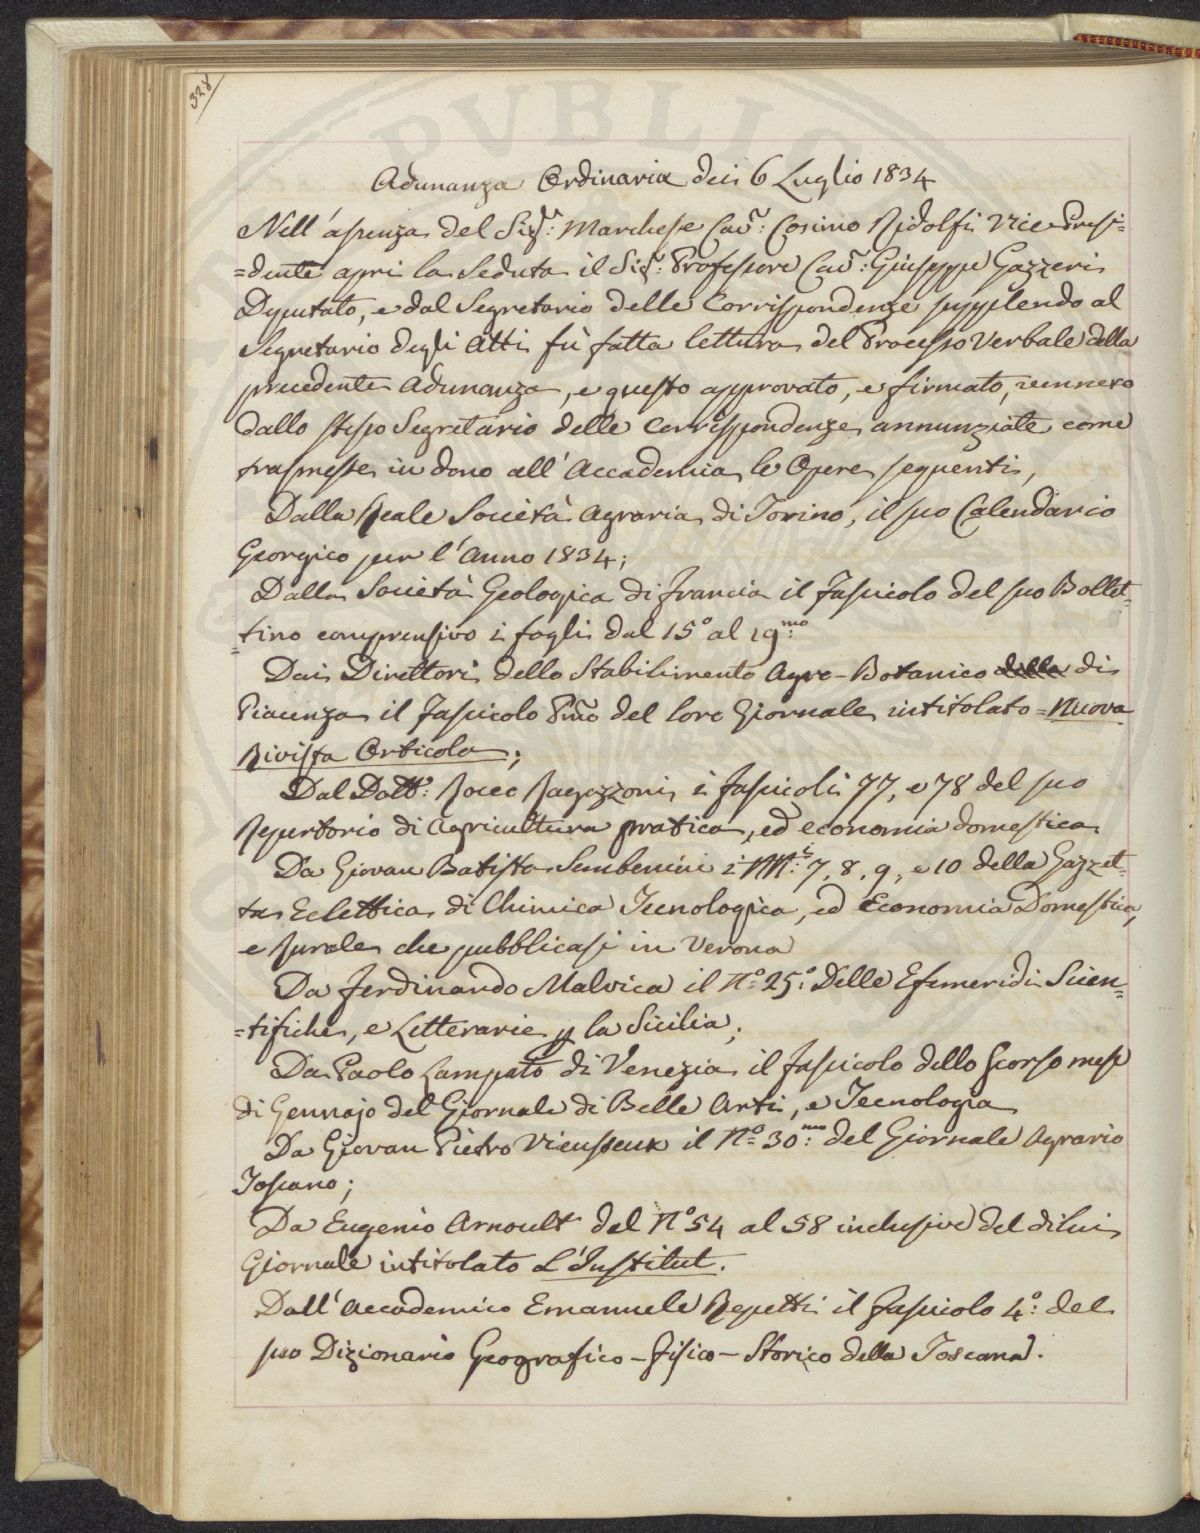 328
PVBLIC
Adunanza Ordinaria dei 6 Luglio 1834
Nell'assenza del Sig.r: Marchese Cav.r: Cosimo Ridolfi Vice Presi=
=dente aprì la Seduta il Sig.r: Professore Cav.r: Giuseppe Gazzeri
Deputato, e dal Segretario delle Corrispondenze supplendo al
Segretario degli Atti fù fatta lettura del Processo Verbale della
precedente Adunanza, e questo approvato, e firmato, vennero
dallo stesso Segretario delle Corrispondenze annunziate come
trasmesse in dono all'Accademia le Opere seguenti,
Dalla Reale Società Agraria di Torino, il suo Calendario
Georgico per l'Anno 1834;
Dalla Società Geologica di Francia il Fascicolo del suo Bollet=
=tino comprensivo i fogli dal 15° al 19.mo
Dai Direttori dello Stabilimento Agro-Botanico della di
Piacenza il Fascicolo Pmo del loro Giornale intitolato = Nuova
Rivista Orticola;
Dal Dott.r: Rocco Ragazzoni i fascicoli 77, e 78 del suo
Repertorio di Agricultura pratica, ed economia domestica
Da Giovan Batista Sembenini i NN.i: 7, 8, 9, e 10 della Gazzet=
ta Eclettica di Chimica Tecnologica, ed Economia Domestica,
e Rurale che pubblicasi in Verona
Da Ferdinando Malvica il N.° 25.° Delle Efemeridi Scien=
=tifiche, e Letterarie p la Sicilia;
Da Paolo Lampato di Venezia il fascicolo dello scorso mese
di Gennajo del Giornale di Belle Arti, e Tecnologia
Da Giovan Pietro Vieusseux il N.° 30.mo: del Giornale Agrario
Toscano;
Da Eugenio Arnoult dal N° 54 al 58 inclusive del di lui
Giornale intitolato L'Institut.
Dall'Accademico Emanuele Repetti il fascicolo 4.°: del
suo Dizionario Geografico-fisico-Storico della Toscana.